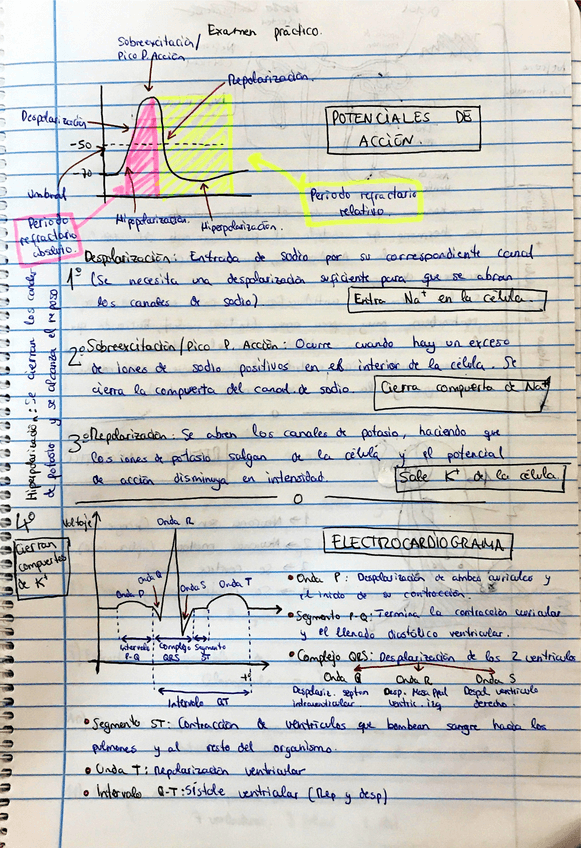 Examen práctico.
Sobreexcitación/
Pico P. Acción
Repolarización.
Despolarización
-50
-70
Umbral
POTENCIALES DE
ACCIÓN.
Periodo
refractario
absoluto.
Hipopolarización.
Hiperpolarización.
Periodo refractario
relativo
Despolarización: Entrada de sodio por su correspondiente canal
1º (Se necesita una despolarización suficiente para que se abran
los canales de sodio)
Entra Na⁺ en la célula.
2º Sobreexcitación/Pico P. Acción: Ocurre cuando hay un exceso
de iones de sodio positivos en el interior de la célula. Se
cierra la compuerta del canal de sodio.
Cierra compuerta de Na⁺
3º Repolarización: Se abren los canales de potasio, haciendo que
los iones de potasio salgan de la célula y el potencial
de acción disminuya en intensidad.
Sale K⁺ de la célula
Hiperpolarización: Se cierran los canales
de potasio y se alcanza el reposo
4º
Cierran
compuertas
de K⁺
Voltaje
Onda R
Onda Q
Onda P
Onda S
Onda T
Intervalo
P-Q
Complejo
QRS
Segmento
ST
Intervalo QT
ELECTROCARDIOGRAMA
• Onda P: Despolarización de ambas aurículas y
el inicio de su contracción.
• Segmento P-Q: Termina la contracción auricular
y el llenado diastólico ventricular.
• Complejo QRS: Despolarización de los 2 ventrículos
Onda Q Onda R Onda S
Despolariz. septon
intraventricular
Desp. Masa ppal
ventric. izq
Despol ventrículo
derecho.
• Segmento ST: Contracción de ventrículos que bombean sangre hacia los
pulmones y al resto del organismo.
• Onda T: Repolarización ventricular
• Intervalo Q-T: Sístole ventricular (Rep y desp)